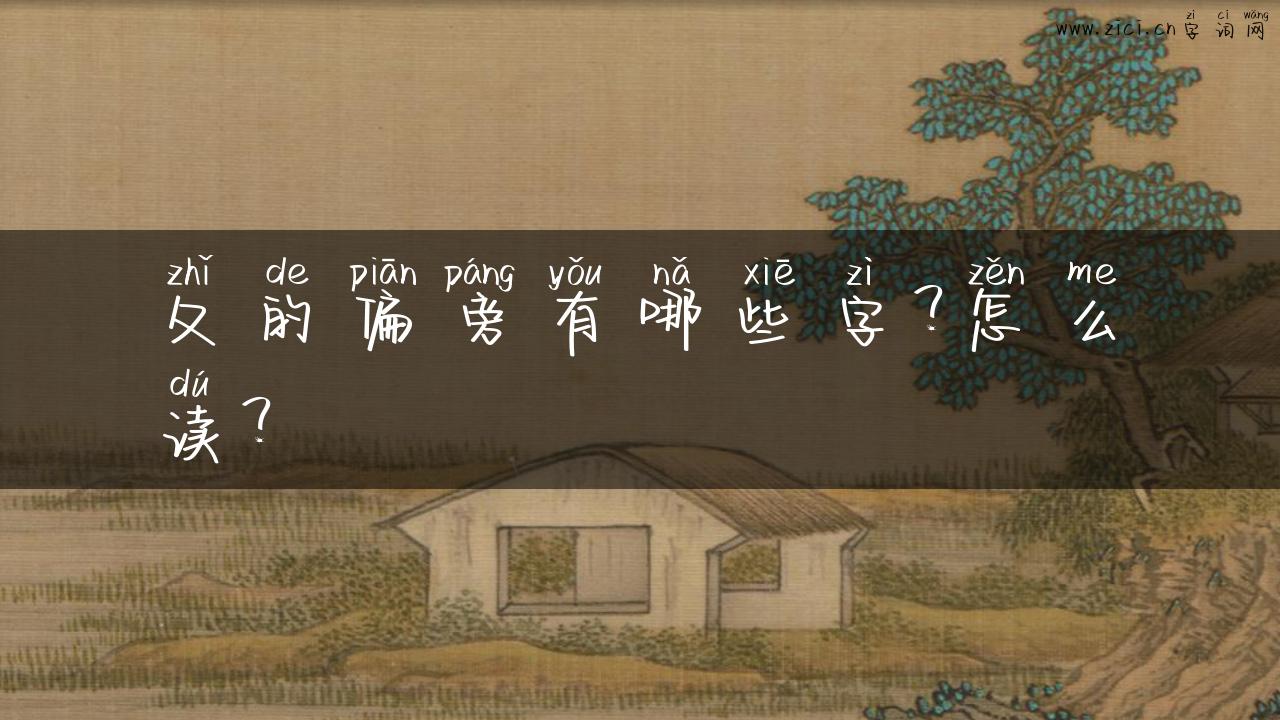 zì cí wǎng
www.zici.cn 字词网
zhǐ de piān páng yǒu nǎ xiē zì zěn me
夂的偏旁有哪些字？怎么
dú
读？